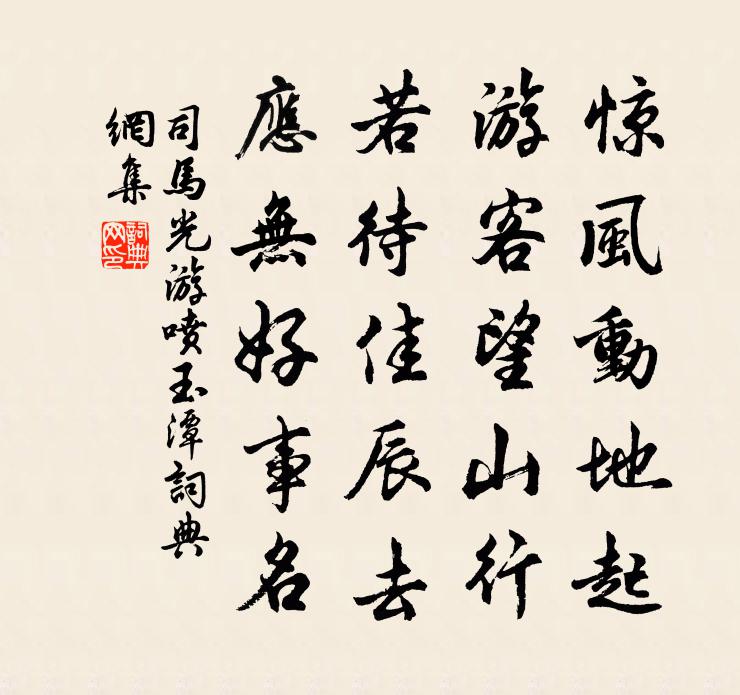 惊風動地起
游客望山行
若待佳辰去
應無好事名
司馬光游喷玉潭詞典
網集
詞典
网印